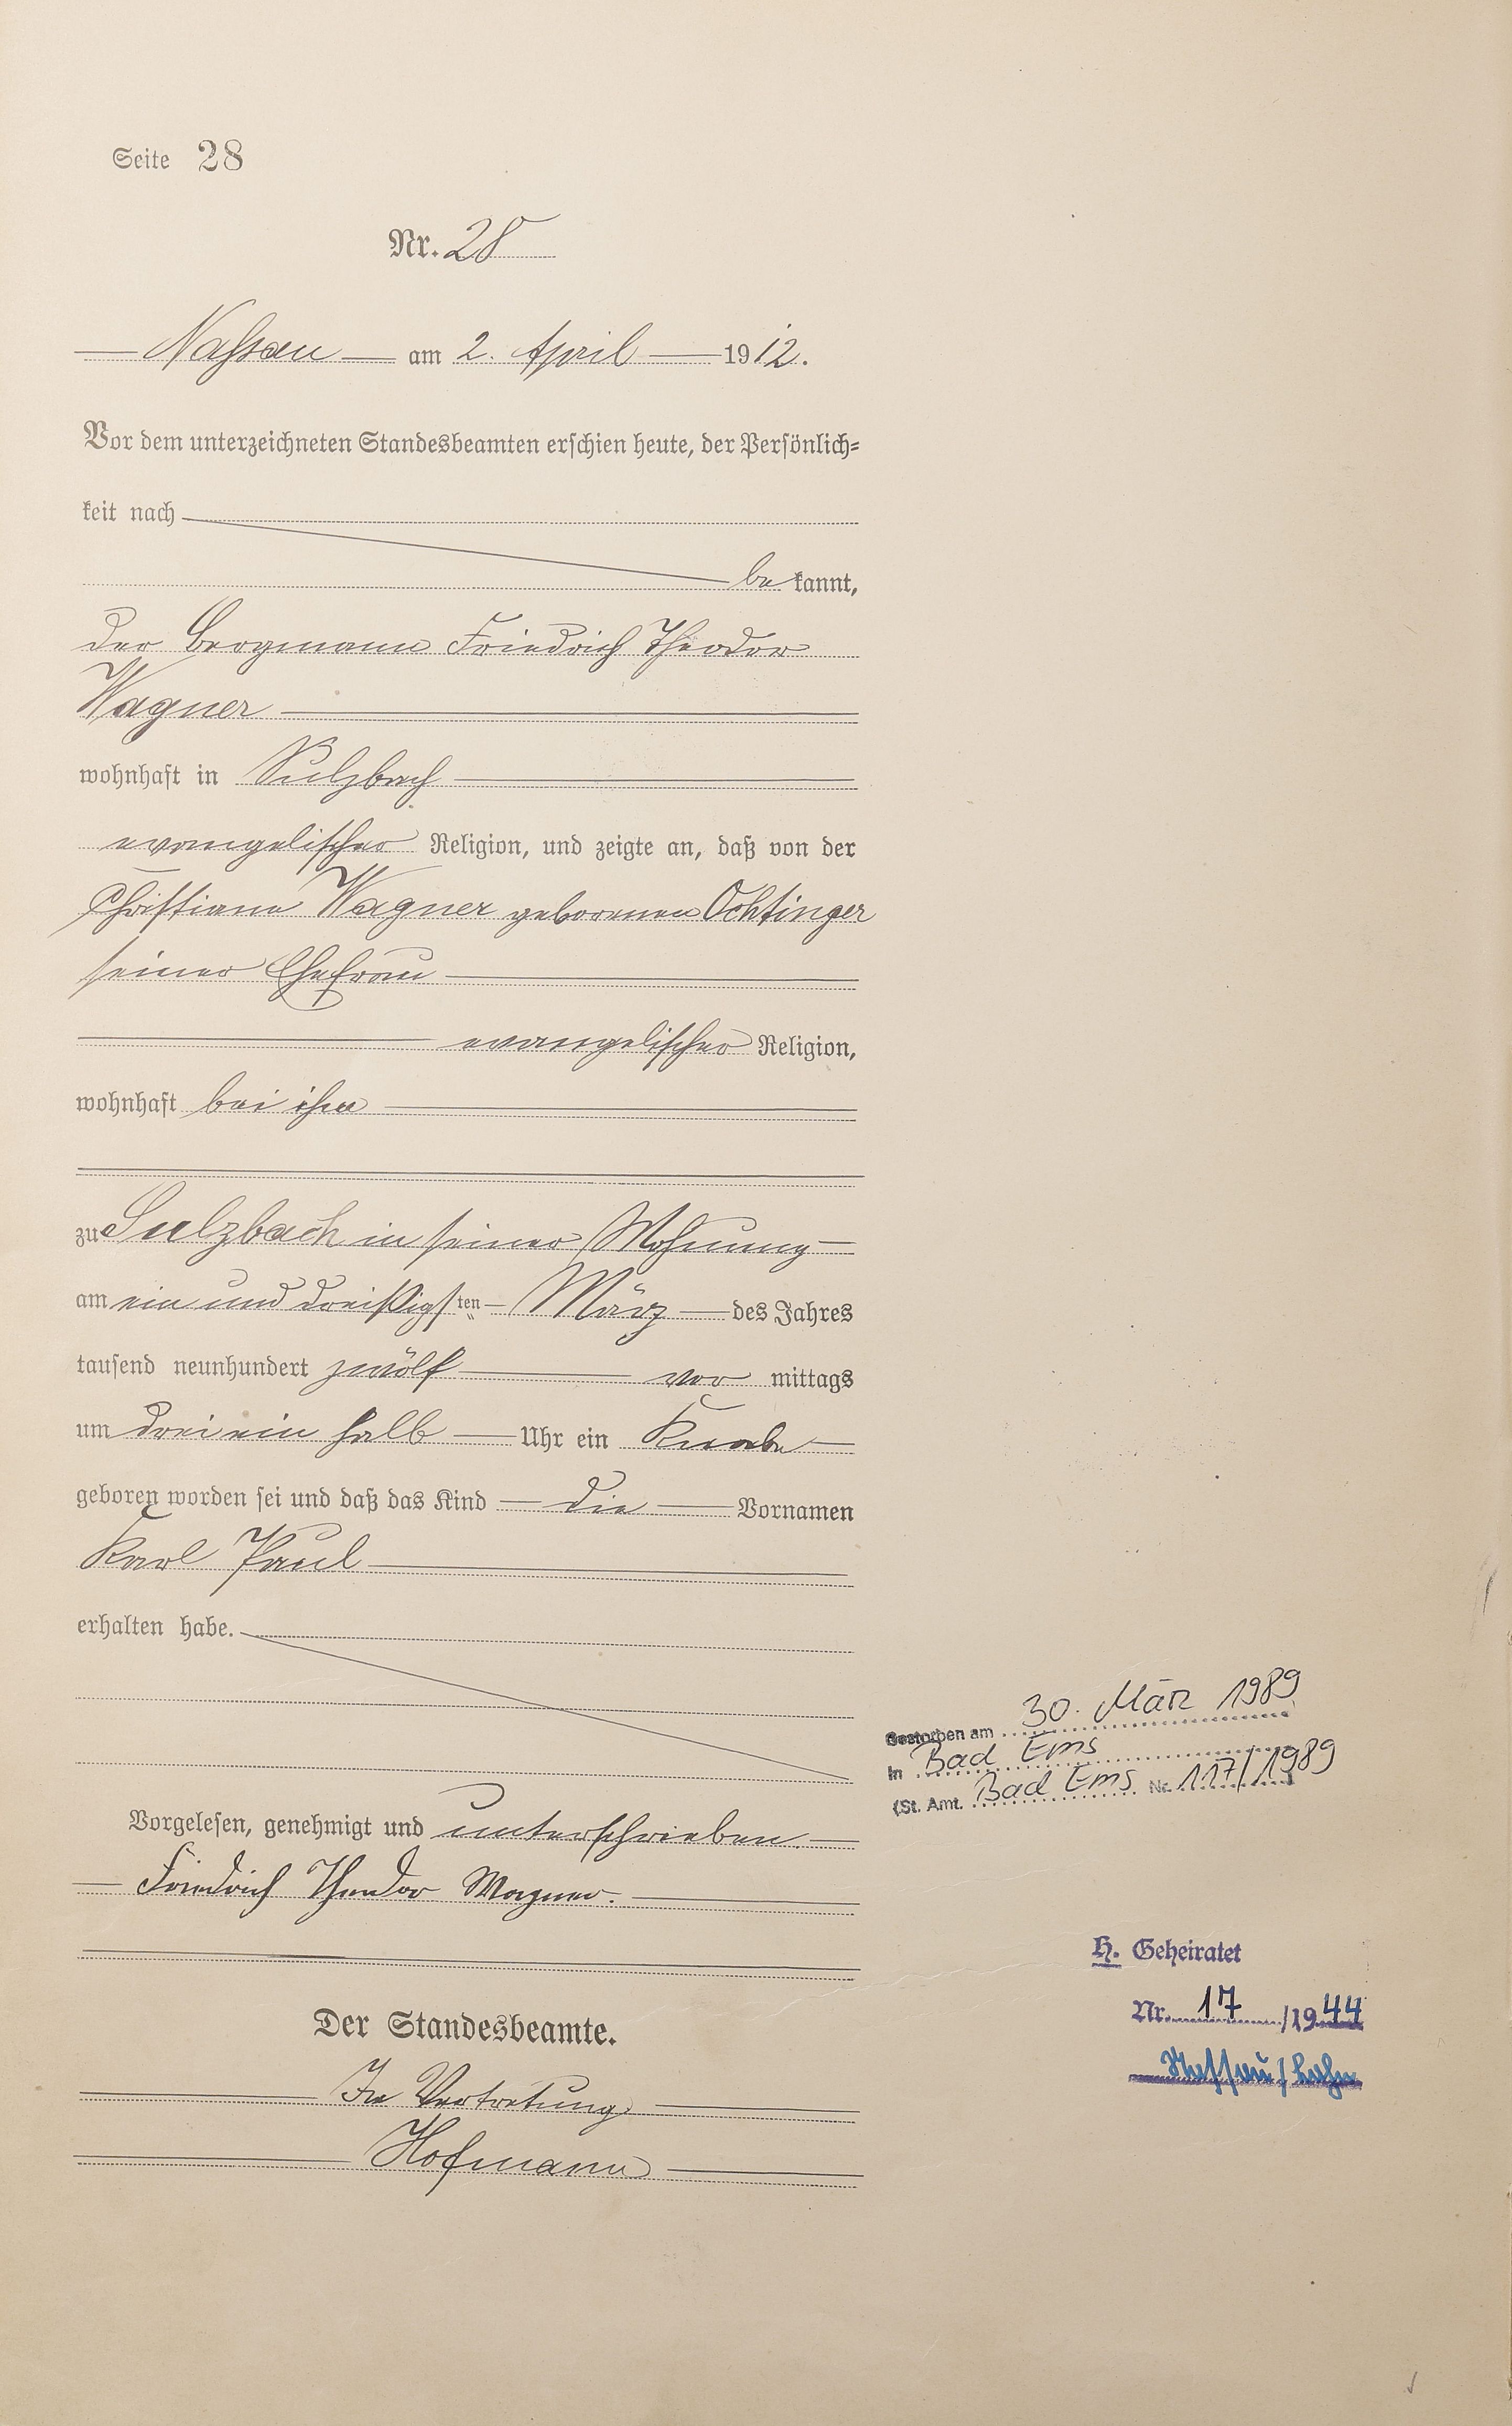 Seite 28
Nr. 28
Nassau am 2. April 1912.
Vor dem unterzeichneten Standesbeamten erschien heute, der Persönlich-
keit nach
be kannt,
der Bergmann Friedrich Theodor
Wagner
wohnhaft in Sulzbach
evangelischer Religion, und zeigte an, daß von der
Christiane Wagner geborenen Ochtinger
seiner Ehefrau
evangelischer Religion,
wohnhaft bei ihm
zu Sulzbach in seiner Wohnung
am ein und dreißigsten März des Jahres
tausend neunhundert zwölf vor mittags
um drei ein halb Uhr ein Knabe
geboren worden sei und daß das Kind die Vornamen
Karl Paul
erhalten habe.
Vorgelesen, genehmigt und unterschrieben.
Friedrich Theodor Wagner.
Der Standesbeamte.
In Vertretung
Hofmann
Gestorben am 30. März 1989
in Bad Ems
(St. Amt. Bad Ems Nr. 117/1989
H. Geheiratet
Nr. 17 /1944
Nassau/Lahn